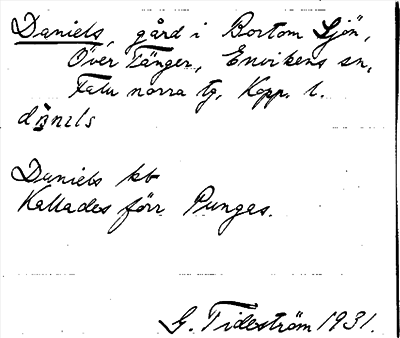 Daniels, gård i Bortom Sjön,
Över Tänger, Envikens sn,
Falu norra tg, Kopp. l.
Daniels kb
Kallades förr Pungas.
G. Tideström 1931.